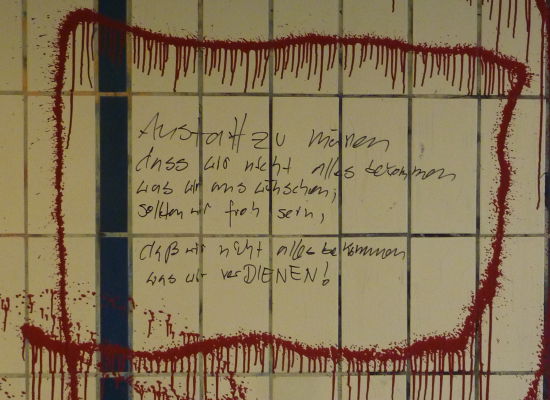 Anstatt zu meinen
dass wir nicht alles bekommen
was wir uns wünschen,
sollten wir froh sein,
daß wir nicht alles bekommen
was wir verDIENEN!